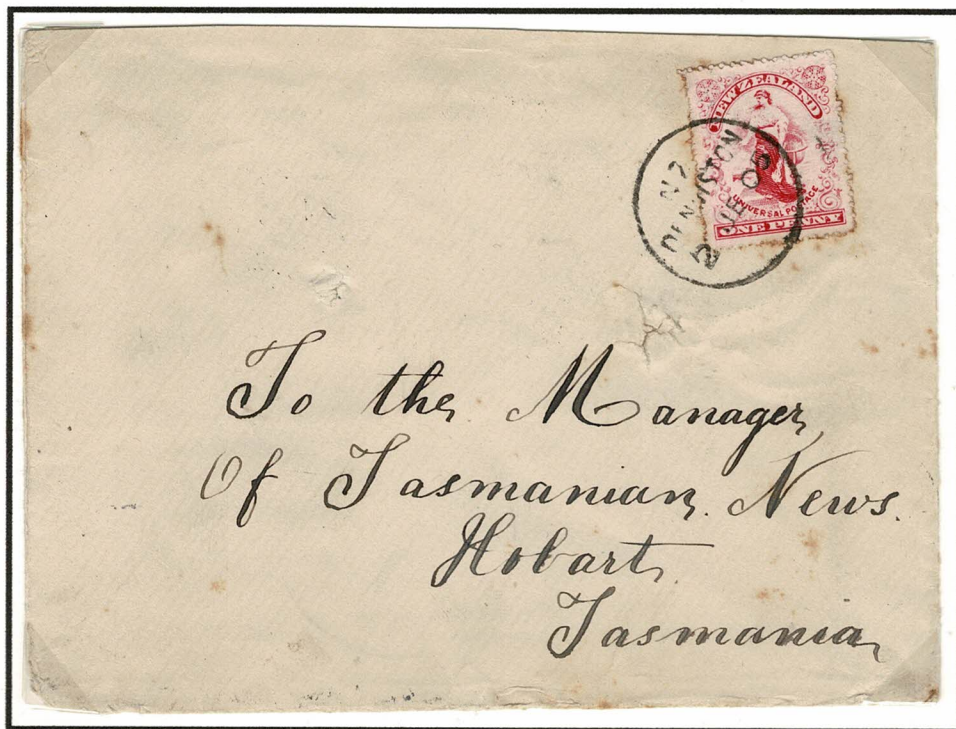 NEW ZEALAND
UNIVERSAL POSTAGE
ONE PENNY
NZ
DENNISTON
2 JE 05
To the Manager,
Of Tasmanian. News.
Hobart.
Tasmania